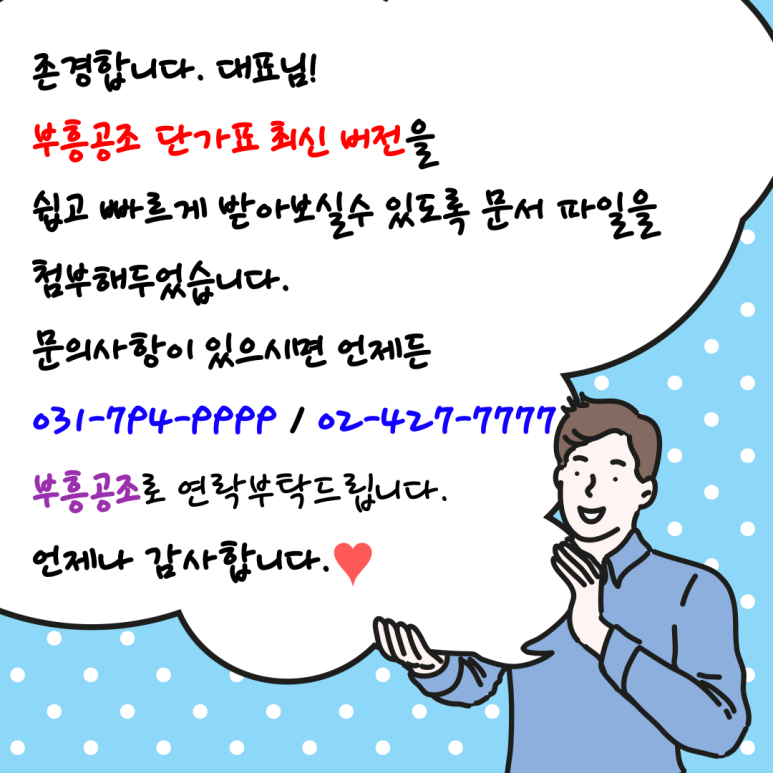 존경합니다. 대표님!
부흥공조 단가표 최신 버전을
쉽고 빠르게 받아보실수 있도록 문서 파일을
첨부해두었습니다.
문의사항이 있으시면 언제든
031-794-9999 / 02-427-7777
부흥공조로 연락부탁드립니다.
언제나 감사합니다.